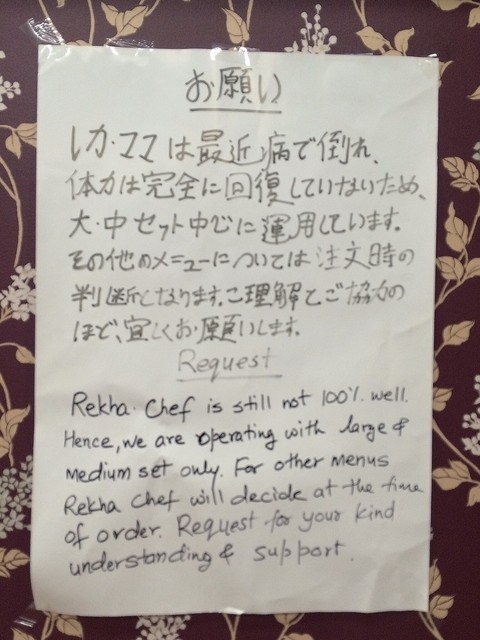 お願い
レカ・ママは最近病で倒れ、
体力は完全に回復していないため、
大・中セット中心に運用しています。
その他のメニューについては注文時の
判断となります。ご理解とご協力の
ほど、宜しくお願いします。
Request
Rekha Chef is still not 100% well.
Hence, we are operating with large &
medium set only. For other menus
Rekha Chef will decide at the time
of order. Request for your kind
understanding & support.